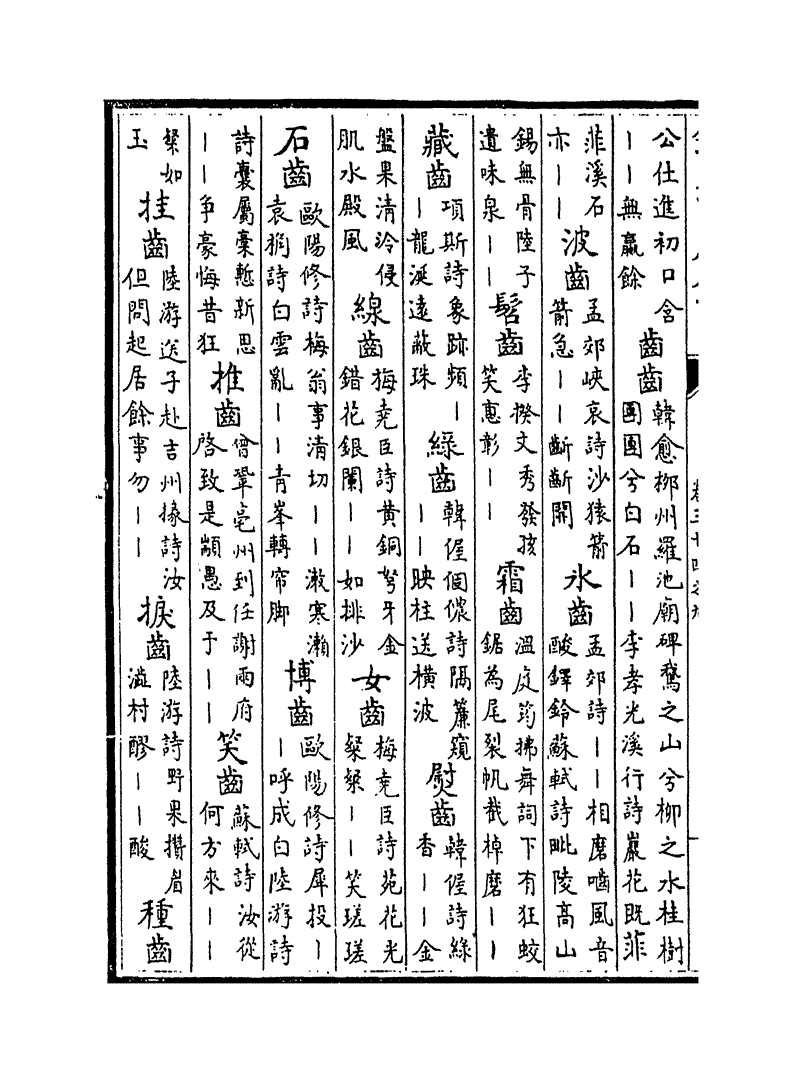 公仕進初口含
——無贏餘
齒齒
韓愈栁州羅池廟碑鵞之山兮柳之水桂樹
團團兮白石——李孝光溪行詩巖花既菲
菲溪石
亦——
波齒
孟郊峽哀詩沙猿箭
箭急——齗齗開
水齒
孟郊詩——相磨嚙風音
酸鐸鈴蘇軾詩毗陵高山
錫無骨陸子
遺味泉——
髫齒
李揆文秀發孩
笑惠彰——
霜齒
溫庭筠拂舞詞下有狂蛟
鋸為尾裂帆截棹磨——
藏齒
項斯詩象跡頻—
—龍涎遠蔽珠
綠齒
韓偓個儂詩隔簾窺
——映柱送橫波
熨齒
韓偓詩綠
香——金
盤果清泠侵
肌水殿風
線齒
梅堯臣詩黃銅弩牙金
錯花銀闌——如排沙
女齒
梅堯臣詩苑花光
粲粲——笑瑳瑳
石齒
歐陽修詩梅翁事清切——漱寒瀨
袁桷詩白雲亂——青峯轉帘脚
博齒
歐陽修詩犀投—
—呼成白陸游詩
詩囊屬橐慙新思
——争豪悔昔狂
推齒
曾鞏亳州到任謝兩府
啓致是顓愚及于——
笑齒
蘇軾詩汝從
何方來——
粲如
玉
挂齒
陸游送子赴吉州掾詩汝
但問起居餘事勿——
捩齒
陸游詩野果攢眉
澁村醪——酸
種齒